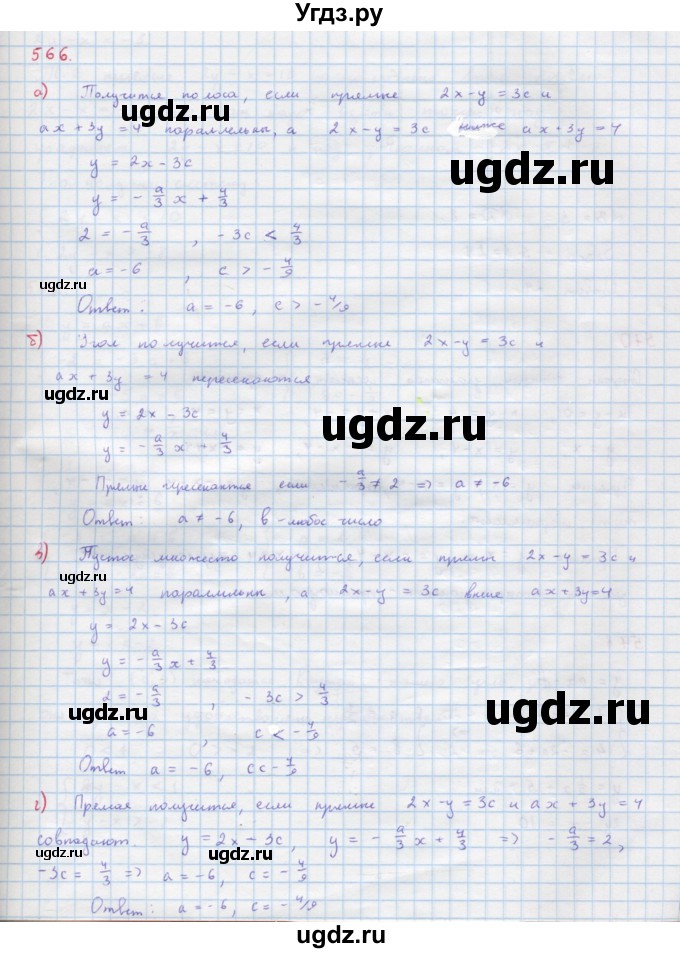 Угдз.ру
566.
а) Получится полоса, если прямые 2x-y = 3c и
ax + 3y = 4 параллельны, а 2x-y = 3c ниже ax+3y=4
y = 2x - 3c
y = - a/3 x + 4/3
2 = - a/3 , - 3c < 4/3
a = -6 , c > - 4/9
Ответ : a = -6, c > - 4/9
б) Угол получится, если прямые 2x-y = 3c и
ax + 3y = 4 пересекаются
y = 2x - 3c
y = - a/3 x + 4/3
Прямые пересекаются если - a/3 ≠ 2 => a ≠ -6
Ответ : a ≠ -6, в - любое число
в) Пустое множесто получится, если прямы 2x-y = 3c и
ax + 3y=4 параллельны, а 2x-y = 3c выше ax+3y=4
y = 2x - 3c
y = - a/3 x + 4/3
2 = - a/3 , - 3c > 4/3
a = -6 , c < - 4/9
Ответ a = -6, c < - 4/9
г) Прямая получится, если прямые 2x-y = 3c и ax + 3y = 4
совпадают. y = 2x - 3c, y = - a/3 x + 4/3 => - a/3 = 2,
-3c = 4/3 => a = -6, c = - 4/9
Ответ: a = -6, c = - 4/9
ugdz.ru
ugdz.ru
ugdz.ru
ugdz.ru
ugdz.ru
ugdz.ru
ugdz.ru
ugdz.ru
ugdz.ru
ugdz.ru
ugdz.ru